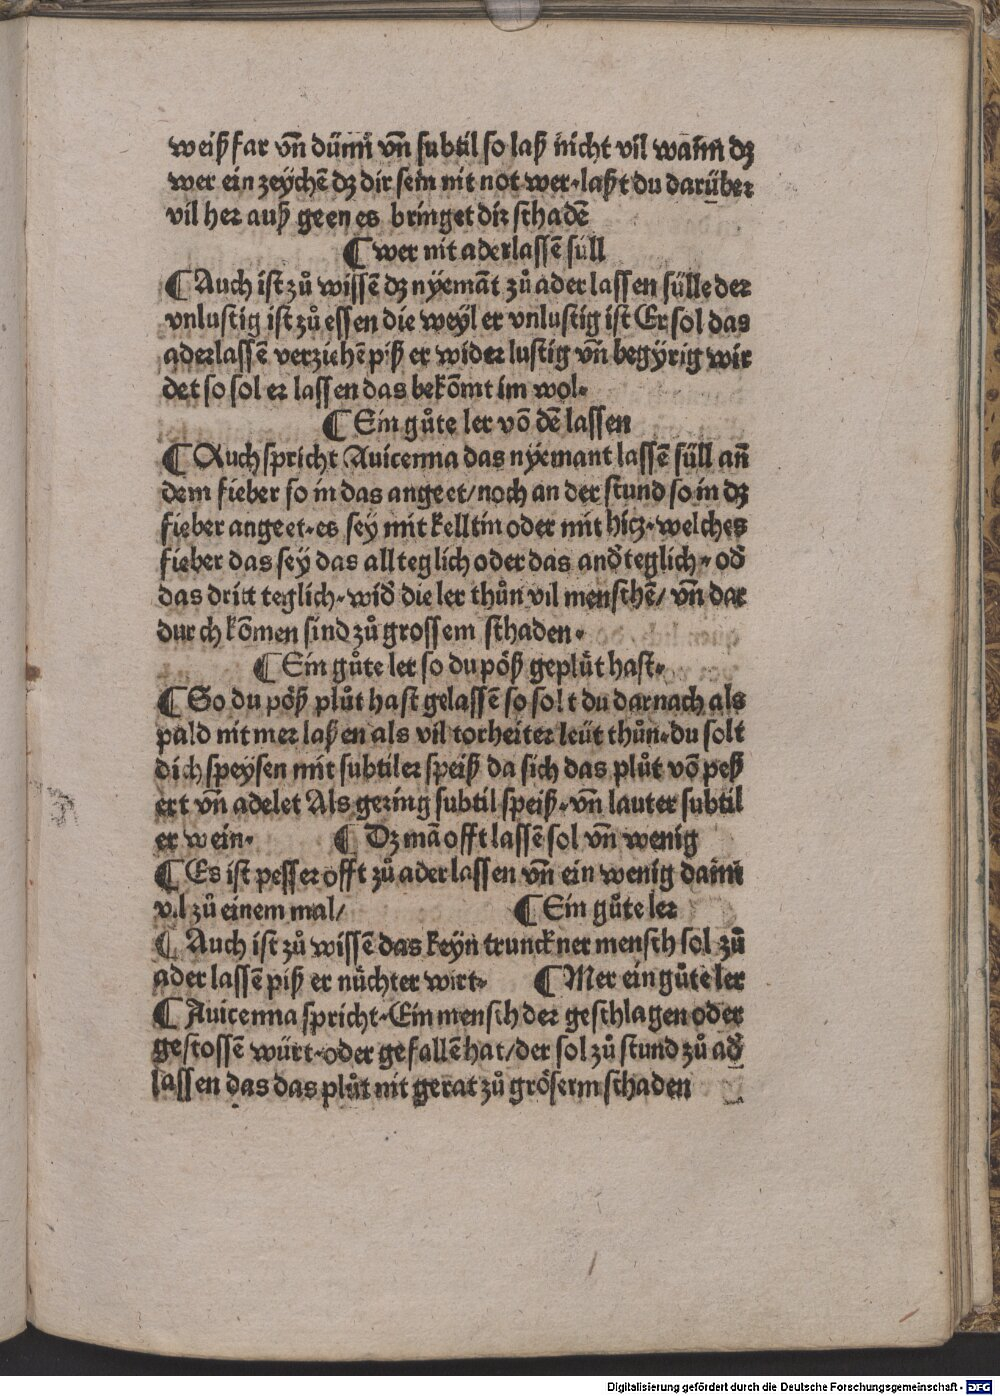 weiß far vn̄ dünn̄ vn̄ subtil so laß nicht vil wann̄ dꝫ
wer ein zeychē dꝫ dir sein nit not wer·laßt du darüber
vil her auß geen es bringet dir schadē
¶ wer nit aderlassē süll
¶ Auch ist zů wissē dꝫ nyemāt zů ader lassen sülle der
vnlustig ist zů essen die weyl er vnlustig ist Er sol das
aderlassē verziehē piß er wider lustig vn̄ begyrig wir
det so sol er lassen das bekōmt im wol·
¶ Ein gůte ler vō dē lassen
¶ Auch spricht Auicenna das nyemant lassē süll an̄
dem fieber so in das angeet/noch an der stund so in dꝫ
fieber angeet·es sey mit kelltin oder mit hicz·welches
fieber das sey das allteglich oder das and̄ teglich·od̄
das dritt teglich·wid̄ die ler thůn vil menschē/ vn̄ dar
durch kōmen sind zů grossem schaden·
¶ Ein gůte ler so du pöß geplüt hast·
¶ So du pöß plůt hast gelassē so solt du darnach als
pald nit mer laßen als vil torheiter leüt thůn·du solt
dich speysen mit subtiler speiß da sich das plůt vō peß
ert vn̄ adelet Als gering subtil speiß·vn̄ lauter subtil
er wein· ¶ Dꝫ mā offt lassē sol vn̄ wenig
¶ Es ist pesser offt zů aderlassen vn̄ ein wenig dann̄
vil zů einem mal/ ¶ Ein gůte ler
¶ Auch ist zů wissē das keyn trunckner mensch sol zů
ader lassē piß er nüchter wirt· ¶ Mer ein gůte ler
¶ Auicenna spricht·Ein mensch der geschlagen oder
gestossē würt·oder gefallē hat/der sol zů stund zů ad̄
lassen das das plůt nit gerat zů gröserm schaden
Digitalisierung gefördert durch die Deutsche Forschungsgemeinschaft - DFG